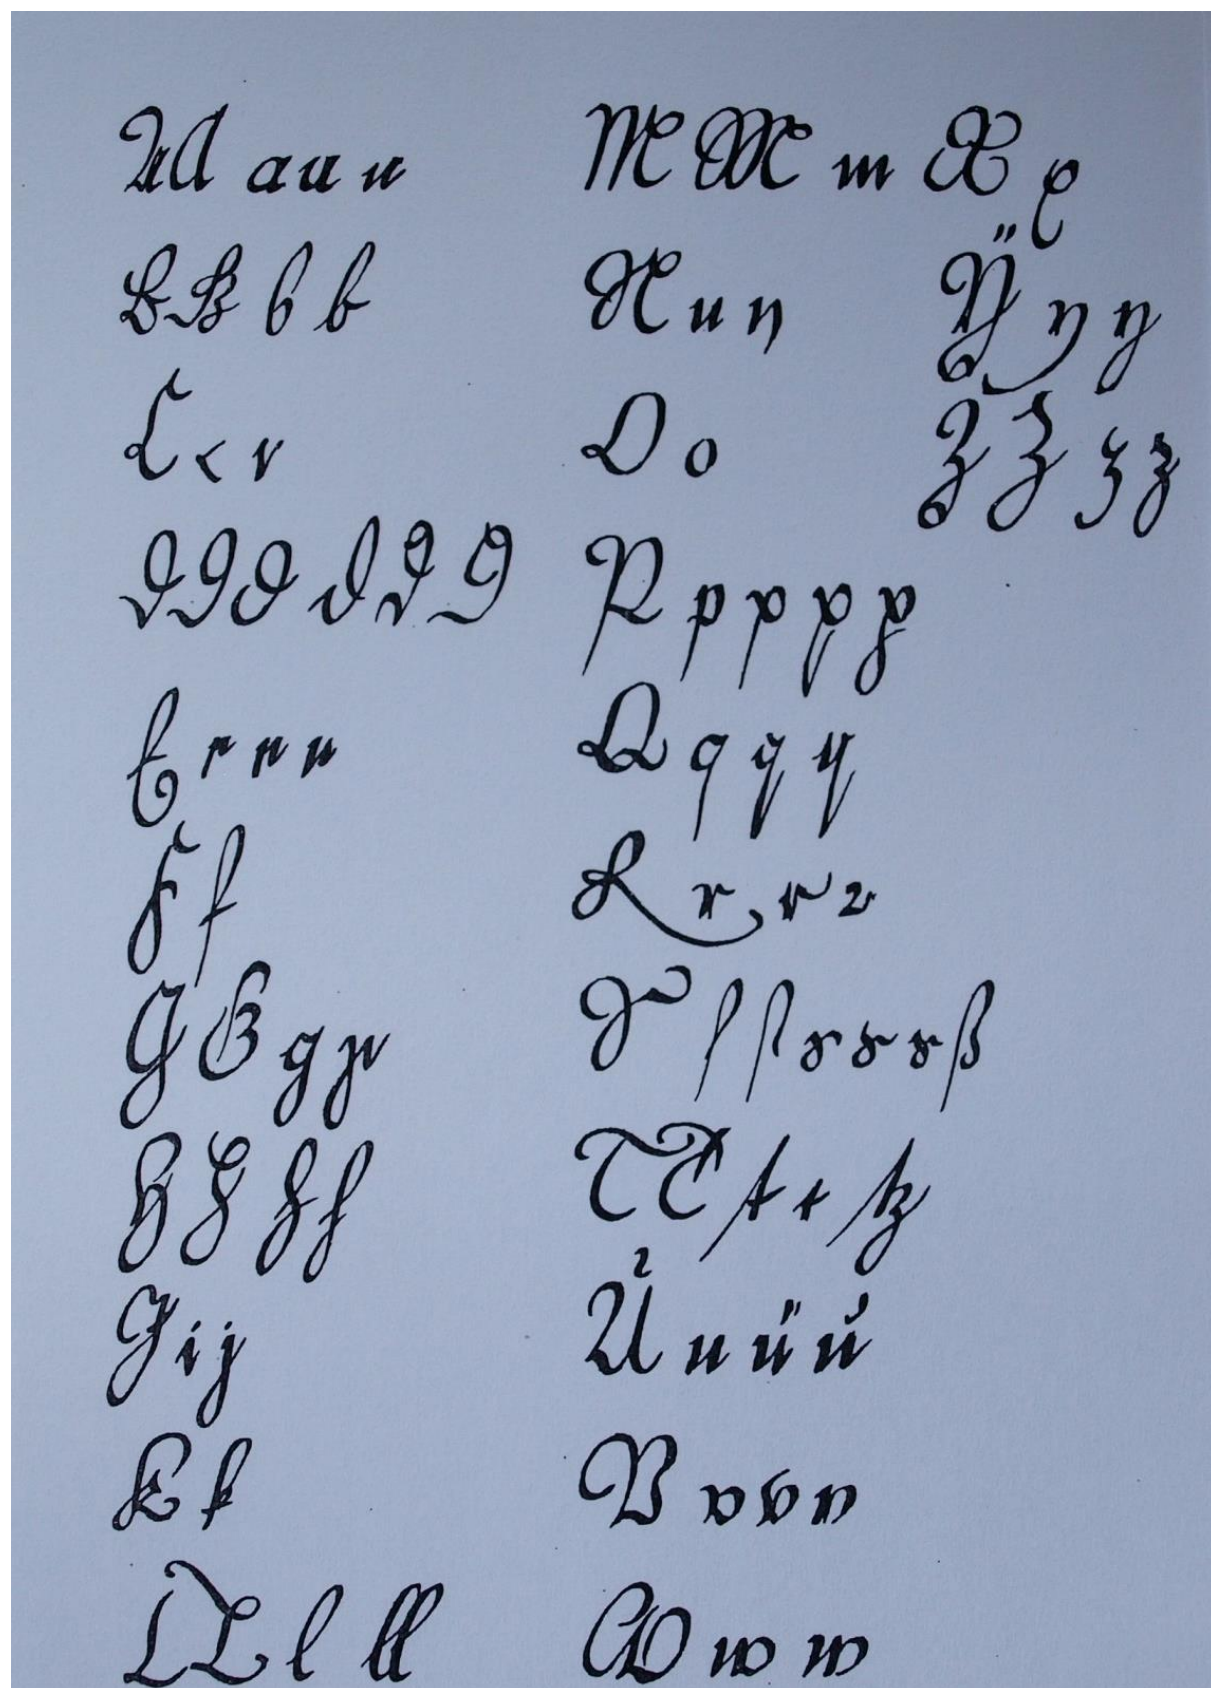 A A a a a
B B b b
C c c
D D D d d d
E e e e
F f
G G g g
H H h h
I i j
K k
L L l ll
M M m
N n n
O o
P p p p p
Q q q q
R r r r
S ſ ſ s s s ß
T T t t tz
Ủ u ü ủ
V v v v
W w w
X x
Ÿ y y
Z Z z z